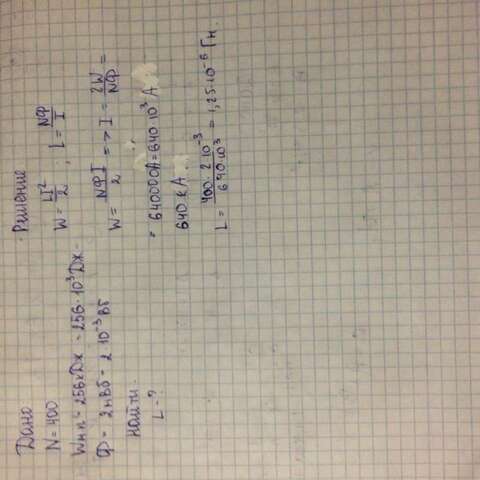 Дано
N = 400
Wмп = 256кДж = 256·10³Дж
Ф = 2мВб = 2·10⁻³Вб
Найти
L - ?
Решение
W = LI²/2 ; L = NФ/I
W = NФI/2 => I = 2W/NФ =
= 640000А = 640·10³ А
640 кА
L = 400·2·10⁻³/640·10³ = 1,25·10⁻⁶ Гн.